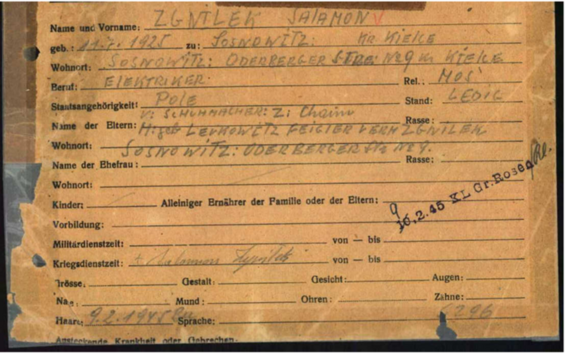 Name und Vorname: ZGNILEK SALAMON V
geb.: 11.5. 1925 zu: SOSNOWITZ: KR KIELCE
Wohnort: SOSNOWITZ: ODERBERGER STRE: NR9 KR KIELCE
Beruf: ELEKTRIKER Rel. MOS
Staatsangehörigkeit: POLE Stand: LEDIG
V: SCHUHMACHER: Z: Chaim Rasse:
Name der Eltern: LEWKOWITZ FEIGLER VERH ZGNILEK
Wohnort: SOSNOWITZ: ODERBERGER Str No 9.
Name der Ehefrau: Rasse:
Wohnort:
Kinder: Alleiniger Ernährer der Familie oder der Eltern: 9
10.2.45 KL Gr. Rosen
Vorbildung:
Militärdienstzeit: von — bis
Kriegsdienstzeit: von — bis
Grösse: Gestalt: Gesicht: Augen:
Nase: Mund: Ohren: Zähne:
Haare: 9.2.1945 Sprache: 296
Ansteckende Krankheit oder Gebrechen: